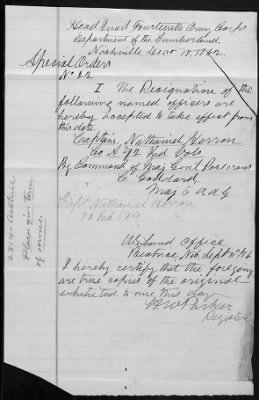 Head Quart Fourteenth Army Corps
Department of the Cumberland
Nashville, Dec 18, 1862
Special Orders
No. 22
I The Resignation of the
following named officers are
hereby accepted to take effect from
this date
Captain Nathaniel Herron
Co A 72 Ind Vols
By Command of Maj Genl Rosecrans
C Goddard
Maj & A A G
Capt Nathaniel Herron
72 Ind Vols
U S Land Office
Beatrice, Neb Sept
I hereby certify that the foregoing
are true copies of the original
exhibited to me this day
H W Parker
Register
Please give term
of service.